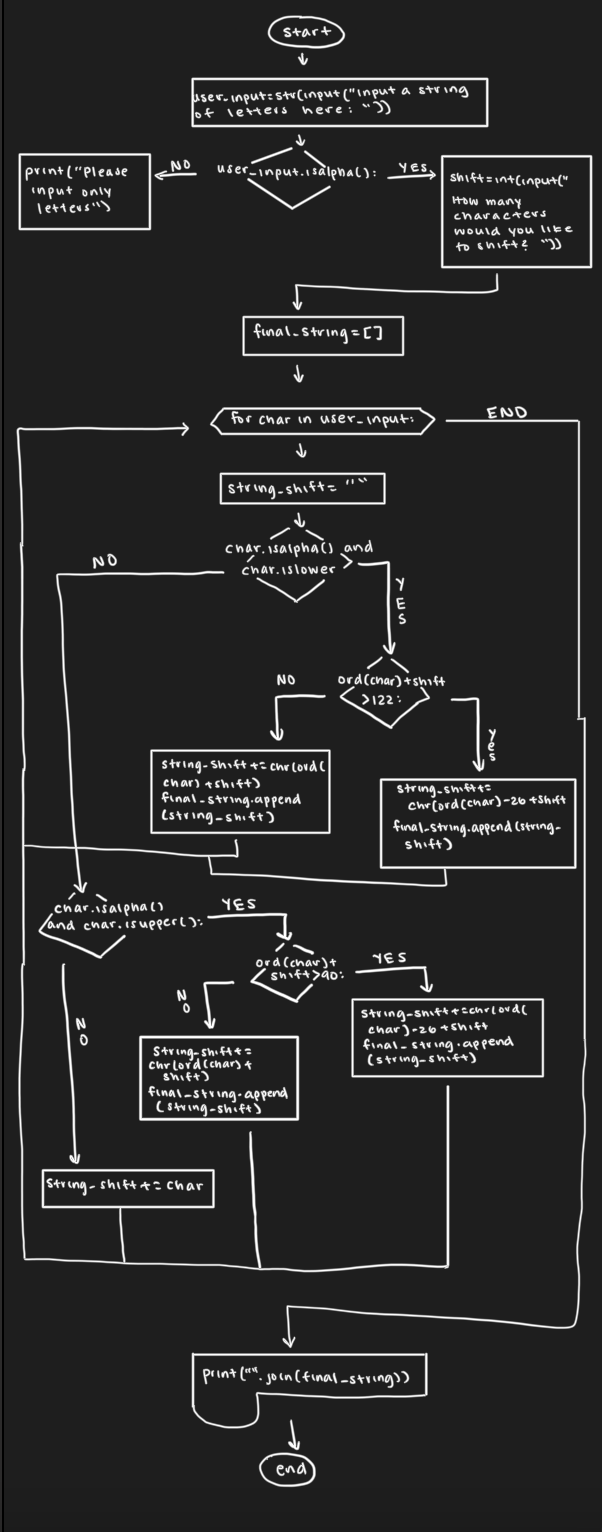 start
user_input=str(input("Input a string
of letters here: "))
NO
user_input.isalpha():
YES
print("Please
input only
letters")
shift=int(input("
How many
characters
would you like
to shift? "))
final_string=[]
for char in user_input:
END
string_shift= ""
char.isalpha() and
char.islower
NO
YES
ord(char)+shift
>122:
NO
Yes
string_shift+=chr(ord(
char)+shift)
final_string.append
(string_shift)
string_shift+=
chr(ord(char)-26+shift
final_string.append(string_
shift)
char.isalpha()
and char.isupper():
YES
ord(char)+
shift>90:
YES
NO
NO
string_shift+=chr(ord(
char)-26+shift
final_string.append
(string_shift)
String_shift+=
chr(ord(char)+
shift)
final_string.append
(string_shift)
String_shift+=char
print("".join(final_string))
end